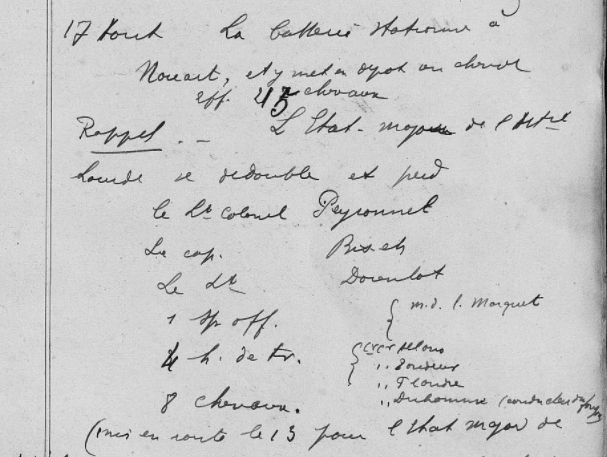 17 Aout La batterie stationne à
Nouart, et y met en dépot un cheval
Eff. 45 chevaux
Rappel. _ L'Etat-major de l'Artie
Lourde se dédouble et perd
le Lt Colonel Peyronnet
Le cap. Bisch
Le Lt
1 s/ off. { m.d.l. Marquet
4 h. de tr. {
,,
,, Flandre
8 chevaux. ,, Duhomme (conducteur du fourgon)
(mis en route le 13 pour l'Etat major de